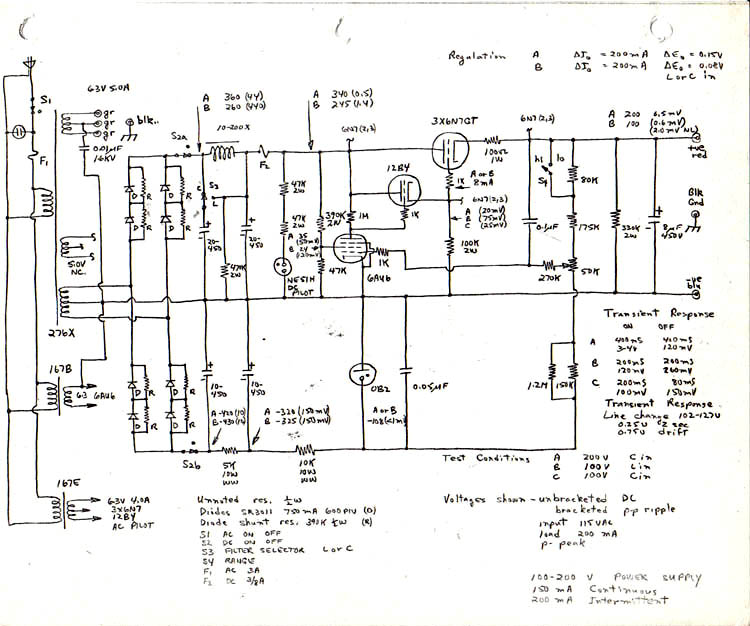 Regulation A ΔI₀ = 200mA ΔE₀ = 0.15V
B ΔI₀ = 200mA ΔE₀ = 0.08V
L or C in
S1
63V 5.0A
gr
gr
gr
blk..
0.01μF
1.6KV
F1
A 360 (44)
B 260 (440)
S2a
10-200X
F2
A 340 (0.5)
B 245 (1.4)
6N7(2,3)
3X6N7GT
6N7(2,3)
A 200 6.5mV
B 100 (0.6mV)
(2.0mV NL)
+ve
red
100Ω
1W
12B4
1K
A or B
8mA
hi
lo
S4
80K
D
R
D
R
C
S3
L
47K
2W
47K
2W
390K
2W
1M
1K
6N7(2,3)
A (20mV)
B (75mV)
C (25mV)
Blk
Gnd
+
20-
450
+
20-
450
A 35
(50mV)
B 24
(120mV)
0.1μF
175K
330K
2W
8μF
450V
S
S
5.0V
NC.
47K
2W
NE51H
DC
PILOT
47K
6AU6
1K
100K
2W
270K
50K
-ve
blu
276X
167B
6.3 6AU6
Transient Response
ON OFF
A 400mS 400mS
3-4V 120mV
B 200mS 200mS
120mV 260mV
C 200mS 80mS
100mV 150mV
Transient Response.
Line change 102-127V
0.25V 2 sec
0.75V drift
D
R
D
R
10-
450
10-
450
OB2
0.05μF
1.2M
150K
A-420(10)
B-430(14)
A -320(150mV)
B -325(150mV)
A or B
S2b
5K
10W
WW
10K
10W
WW
Test Conditions A 200V C in
B 100V L in
C 100V C in
167E
63V 4.0A
3x6N7
12B4
AC PILOT
Unnoted res. ½W
Diodes SR3011 750mA 600PIV (D)
Diode shunt res. 390K ½W (R)
S1 AC ON OFF
S2 DC ON OFF
S3 FILTER SELECTOR L or C
S4 RANGE
F1 AC 3A
F2 DC 3/8A
Voltages shown - unbracketed DC
bracketed p-p ripple
input 115VAC
load 200 mA
p- peak
100-200 V POWER SUPPLY
150 mA Continuous
200 mA Intermittent